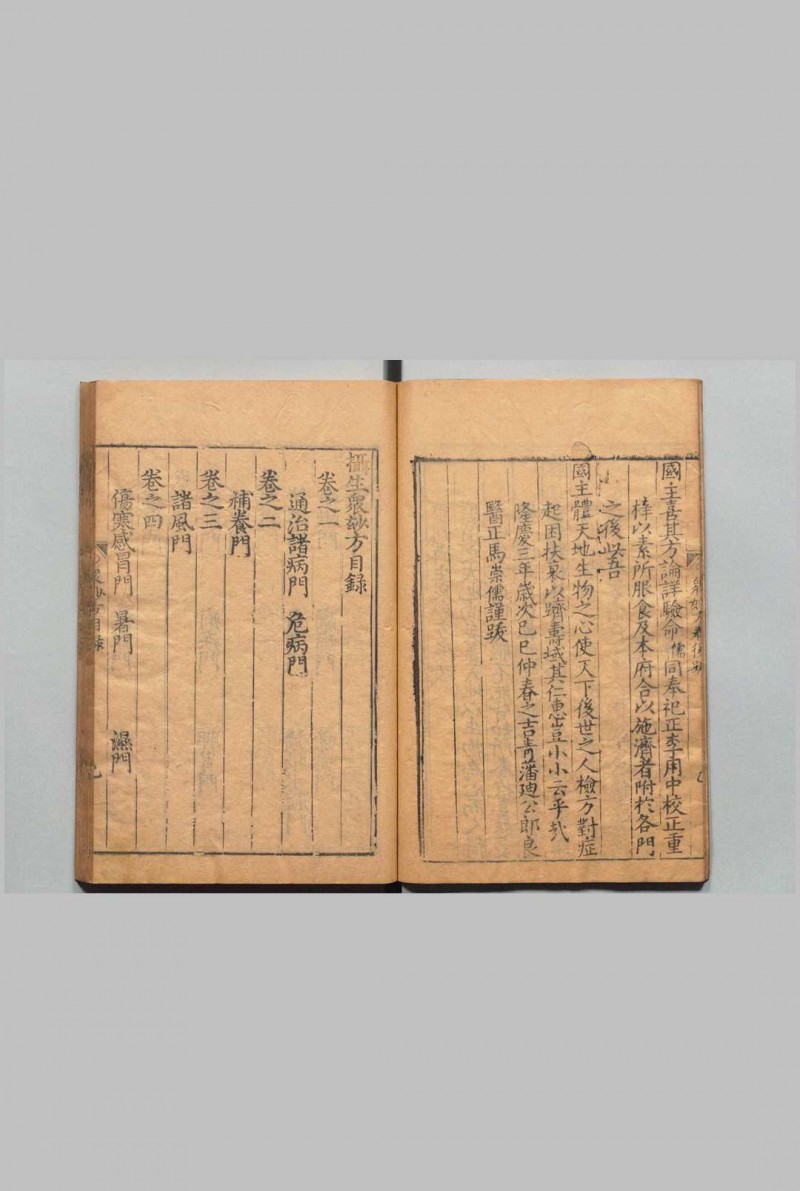 國主喜其方論詳驗命儒同奉祀正李用中校正重
梓以素所服食及本府合以施濟者附於各門
之後此吾
國主體天地生物之心使天下後世之人檢方對症
起困扶衰以躋壽域其仁恵豈小小云乎哉
隆慶三年歲次己巳仲春之吉青藩廸公郎良
醫正馬崇儒謹跋
攝生衆妙方目錄
卷之一
通治諸病門 危病門
卷之二
補養門
卷之三
諸風門
卷之四
傷寒感冒門 暑門 濕門